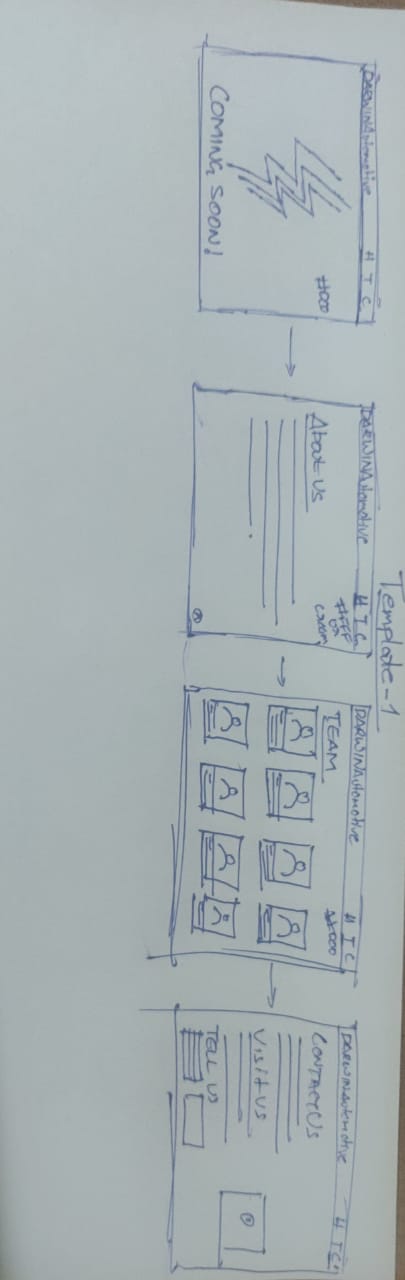 Template-1
DARWINAutomotive H T C
#000
COMING SOON!
DARWINAutomotive H T C
#FFF
or
cream
About Us
DARWINAutomotive H T C
#000
TEAM
DARWINAutomotive H T C
CONTACT US
VISIT US
TELL US